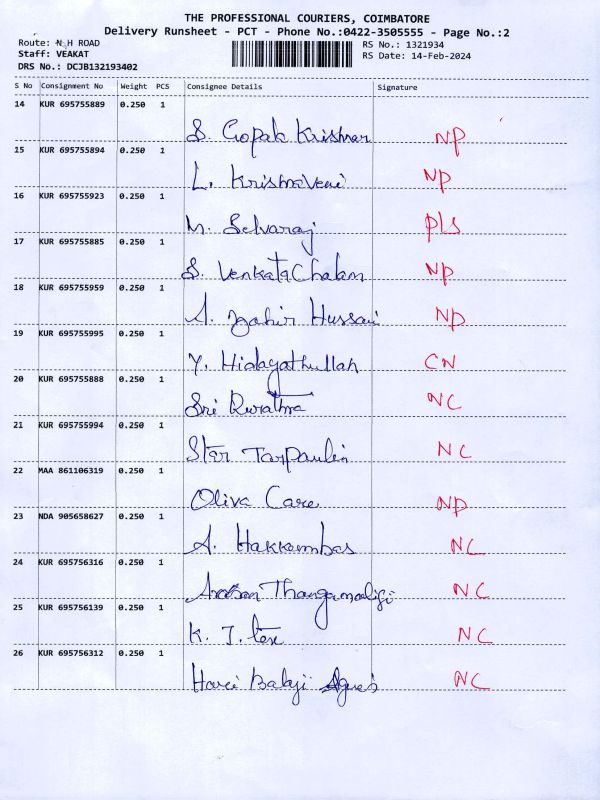 THE PROFESSIONAL COURIERS, COIMBATORE
Delivery Runsheet - PCT - Phone No.:0422-3505555 - Page No.:2
Route: N H ROAD RS No.: 1321934
Staff: VEAKAT RS Date: 14-Feb-2024
DRS No.: DCJB132193402
S No Consignment No Weight PCS Consignee Details Signature
14 KUR 695755889 0.250 1
S. Gopala Krishnan NP
15 KUR 695755894 0.250 1
L. KrishnaVeni NP
16 KUR 695755923 0.250 1
M. Selvaraj Pls
17 KUR 695755885 0.250 1
S. VenkataChalam NP
18 KUR 695755959 0.250 1
A. Zahir Hussain NP
19 KUR 695755995 0.250 1
Y. Hidayathullah CN
20 KUR 695755888 0.250 1
Sri NC
21 KUR 695755994 0.250 1
Star Tarpaulin NC
22 MAA 861106319 0.250 1
Oliva Care NP
23 NDA 905658627 0.250 1
A. NC
24 KUR 695756316 0.250 1
NC
25 KUR 695756139 0.250 1
K. J. tex NC
26 KUR 695756312 0.250 1
Hari Balaji NC